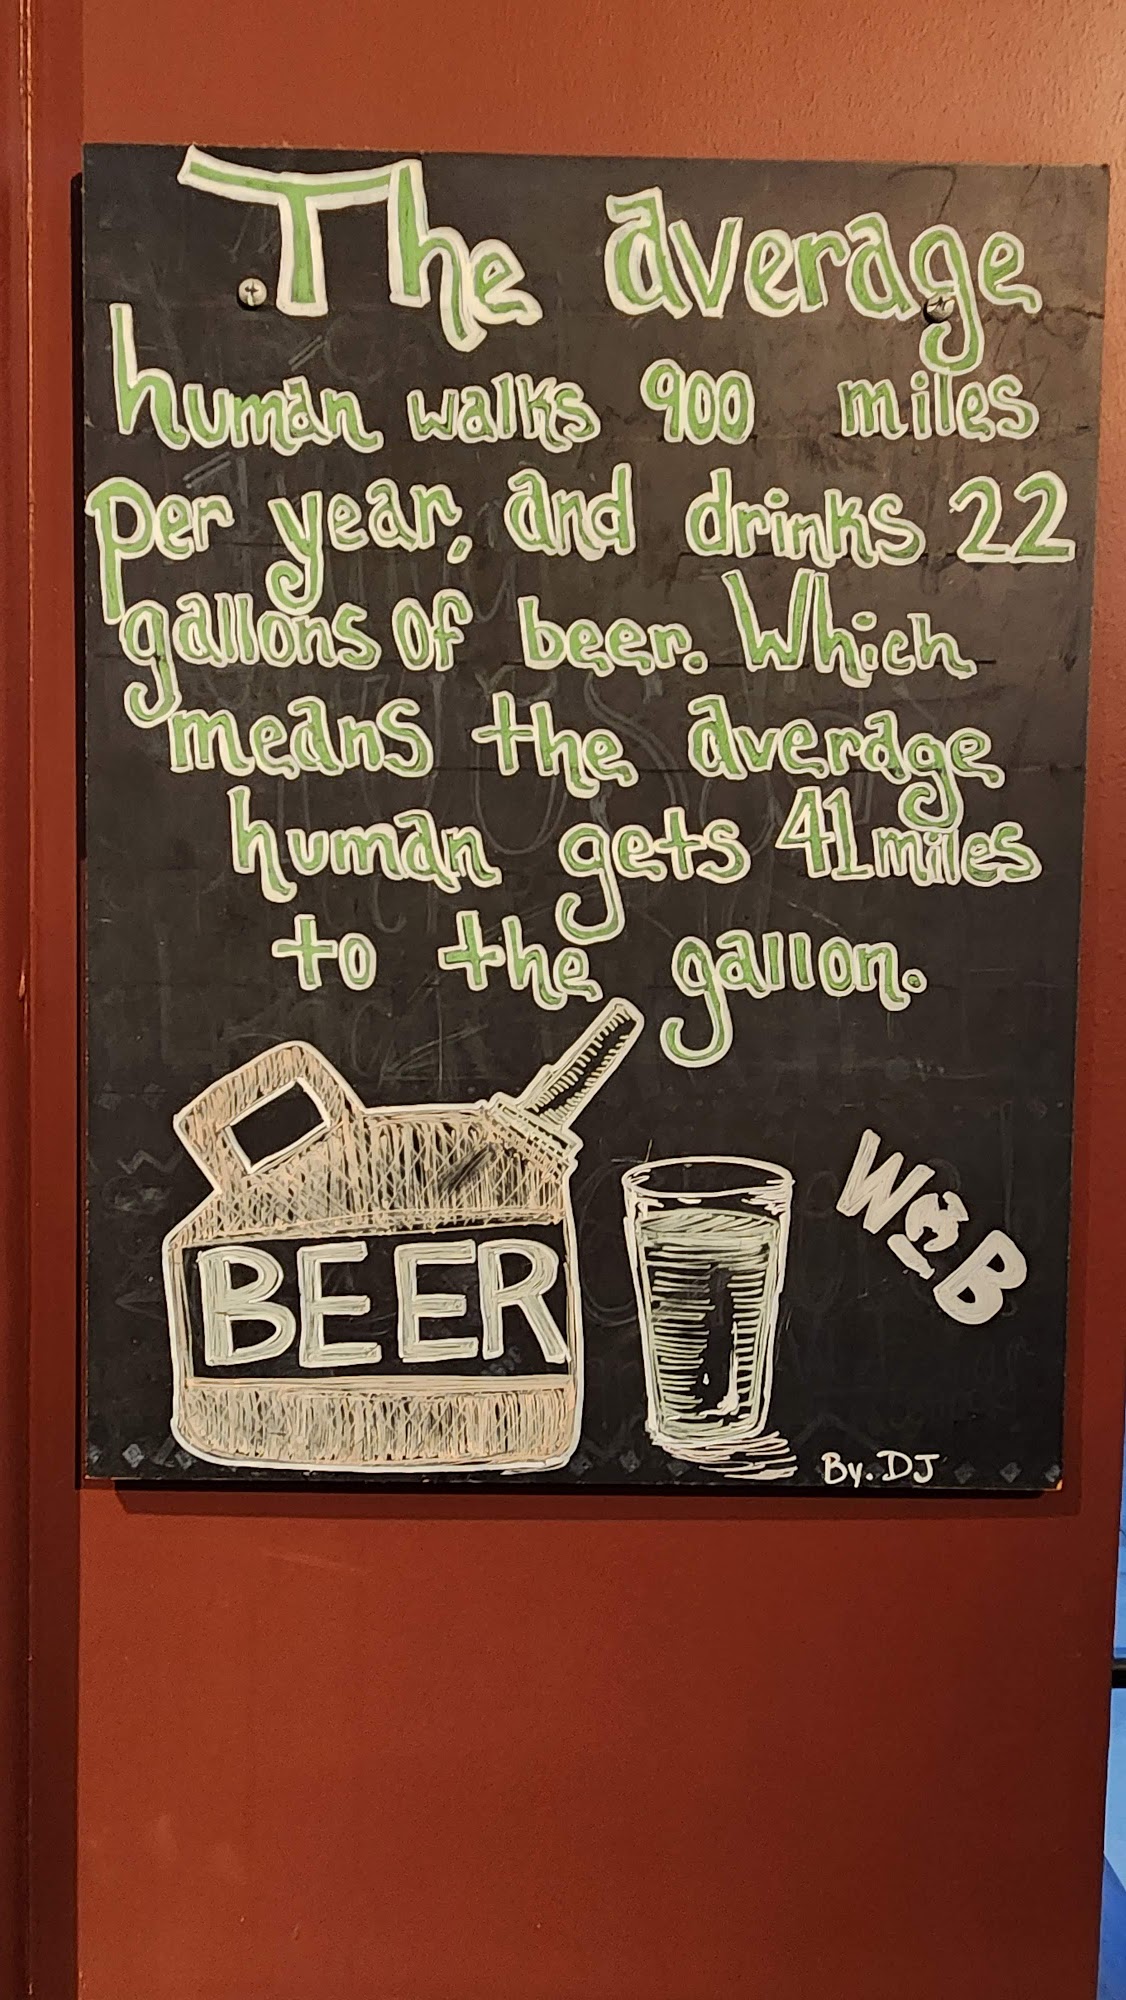 The average
human walks 900 miles
per year, and drinks 22
gallons of beer. Which
means the average
human gets 41 miles
to the gallon.
BEER
W B
By. DJ